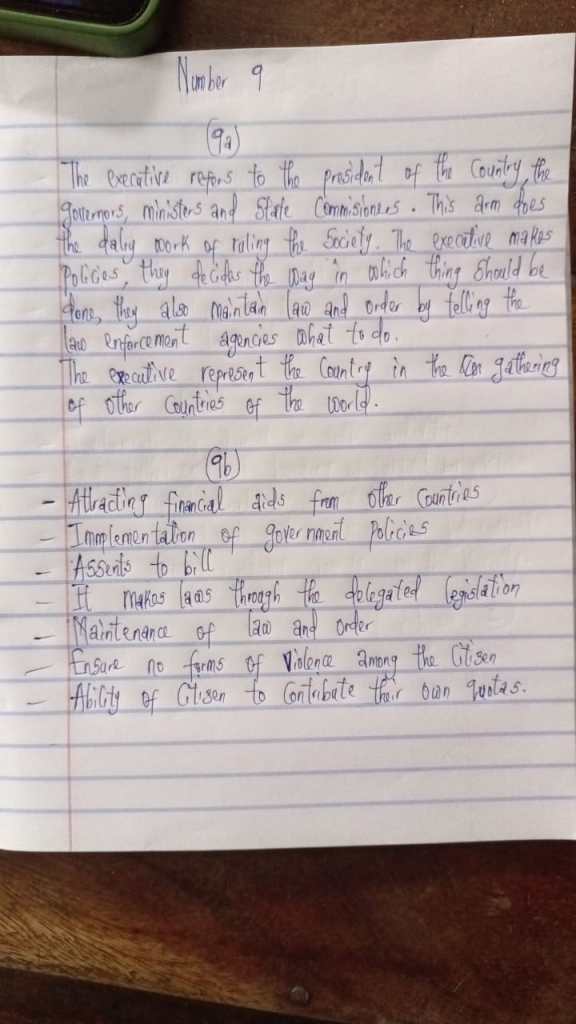 Number 9
(9a)
The executive refers to the president of the Country, the
governors, ministers and State Commisioners. This arm does
the daly work of ruling the Society. The executive makes
Policies, they decides the way in which thing Should be
done, they also maintain law and order by telling the
law enforcement agencies what to do.
The executive represent the Country in the gathering
of other Countries of the world.
(9b)
- Attracting financial aids from other Countries
- Immplementation of government Policies
- Assents to bill
- It makes laws through the delegated legislation
- Maintenance of law and order
- Ensure no forms of Violence among the Citisen
- Ability of Citisen to Contribute their own quotas.